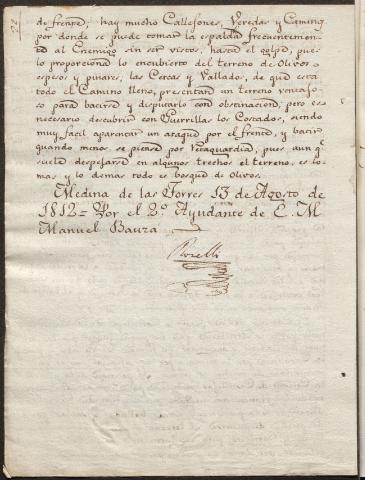 de frente; hay mucho Callefones, Veredas y Caminos
por donde se puede tomar la espalda frecuentemen-
te al Enemigo sin ser vistos, hasta el golpe, pues
lo proporciona lo encubierto del terreno de Olivos
espesos y pinares, las Cercas y Vallados, de que esta
todo el Camino lleno, presentan un terreno ventajo-
so para batirse y disputarlo con obstinacion, pero es
necesario descubrir con Guerrillas los Costados, siendo
muy facil aparentar un ataque por el frente, y batir
quando menos se piense por Retaguardia; pues aun qe.
suele despejarse en algunos trechos el terreno, es lo-
mas y lo demas todo es bosque de Olivos.
Medina de las Torres 13 de Agosto de
1812= Por el 2o. Ayudante de E. M.
Manuel Bauza
Roselli